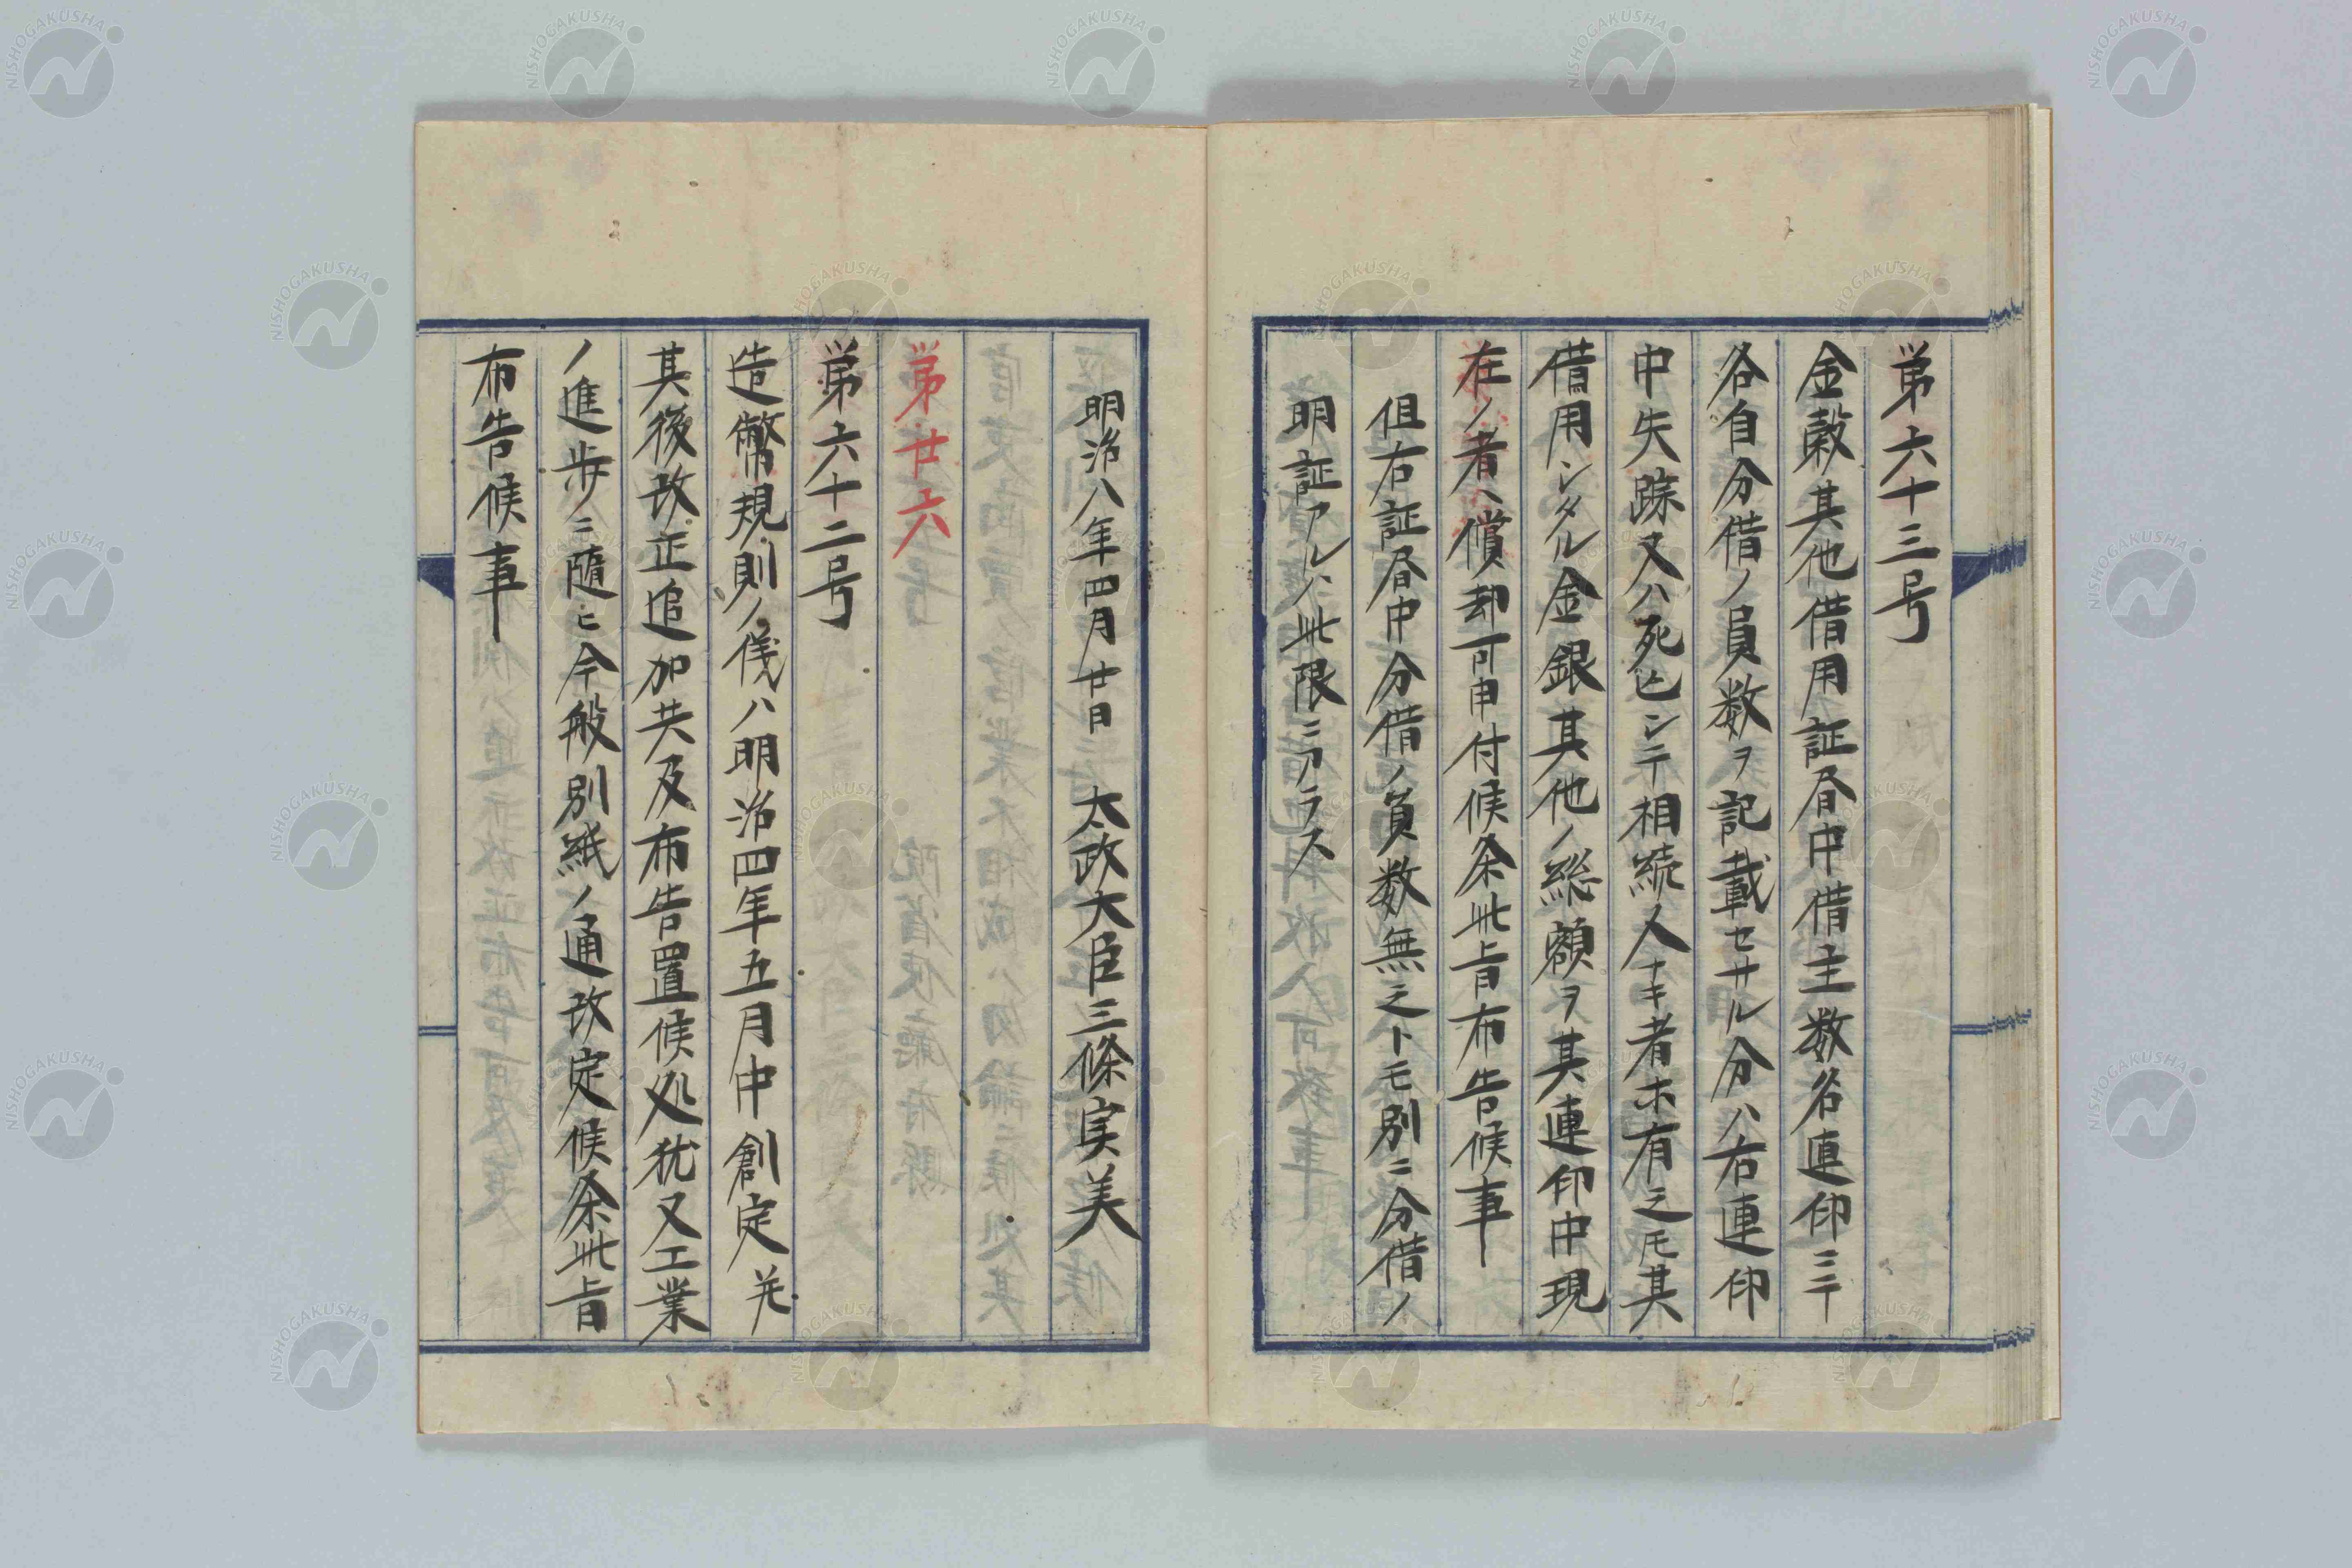 第六十三号
金穀其他借用証書中借主数名連印ニテ
各自分借ノ員数ヲ記載セサル分ハ右連印
中失踪又ハ死亡シテ相続人ナキ者ホ有之モ其
借用シタル金銀其他ノ総額ヲ其連印中現
在ノ者ヘ償却可申付候条此旨布告候事
但右証書中分借ノ員数無之トモ別ニ分借ノ
明証アルハ此限ニアラス
明治八年四月廿日 太政大臣三條実美
第廿六
第六十二号
造幣規則ノ儀ハ明治四年五月中創定并
其後改正追加共及布告置候処猶又工業
ノ進歩ニ随ヒ今般別紙ノ通改定候条此旨
布告候事
NISHOGAKUSHA